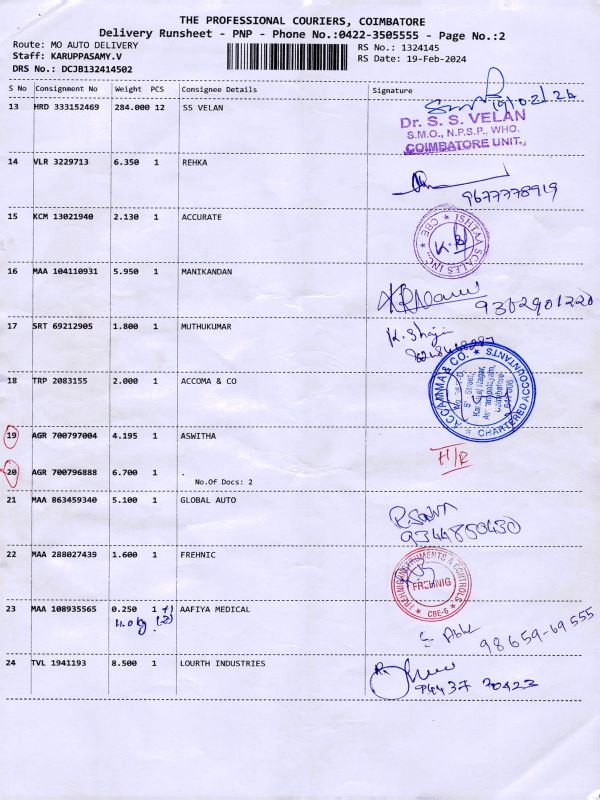 THE PROFESSIONAL COURIERS, COIMBATORE
Delivery Runsheet - PNP - Phone No.:0422-3505555 - Page No.:2
Route: MO AUTO DELIVERY
RS No.: 1324145
Staff: KARUPPASAMY.V
RS Date: 19-Feb-2024
DRS No.: DCJB132414502
S No Consignment No Weight PCS Consignee Details Signature
13 HRD 333152469 284.000 12 SS VELAN
19/02/24
Dr. S. S. VELAN
S.M.O., N.P.S.P., WHO.
COIMBATORE UNIT.,
14 VLR 3229713 6.350 1 REHKA
9677778919
15 KCM 13021940 2.130 1 ACCURATE
ISHTAA SCALES INC., CBE
16 MAA 104110931 5.950 1 MANIKANDAN
9302901220
17 SRT 69212905 1.800 1 MUTHUKUMAR
18 TRP 2083155 2.000 1 ACCOMA & CO
ACCAMMA & CO. CHARTERED ACCOUNTANTS
19 AGR 700797004 4.195 1 ASWITHA
20 AGR 700796888 6.700 1 .
No.Of Docs: 2
21 MAA 863459340 5.100 1 GLOBAL AUTO
9344850430
22 MAA 288027439 1.600 1 FREHNIC
FREHNIG INSTRUMENTS & CONTROLS
FREHNIG
CBE-6
23 MAA 108935565 0.250 1 +1 AAFIYA MEDICAL
4.0 kg (2)
98659-69555
24 TVL 1941193 8.500 1 LOURTH INDUSTRIES
94437 20423